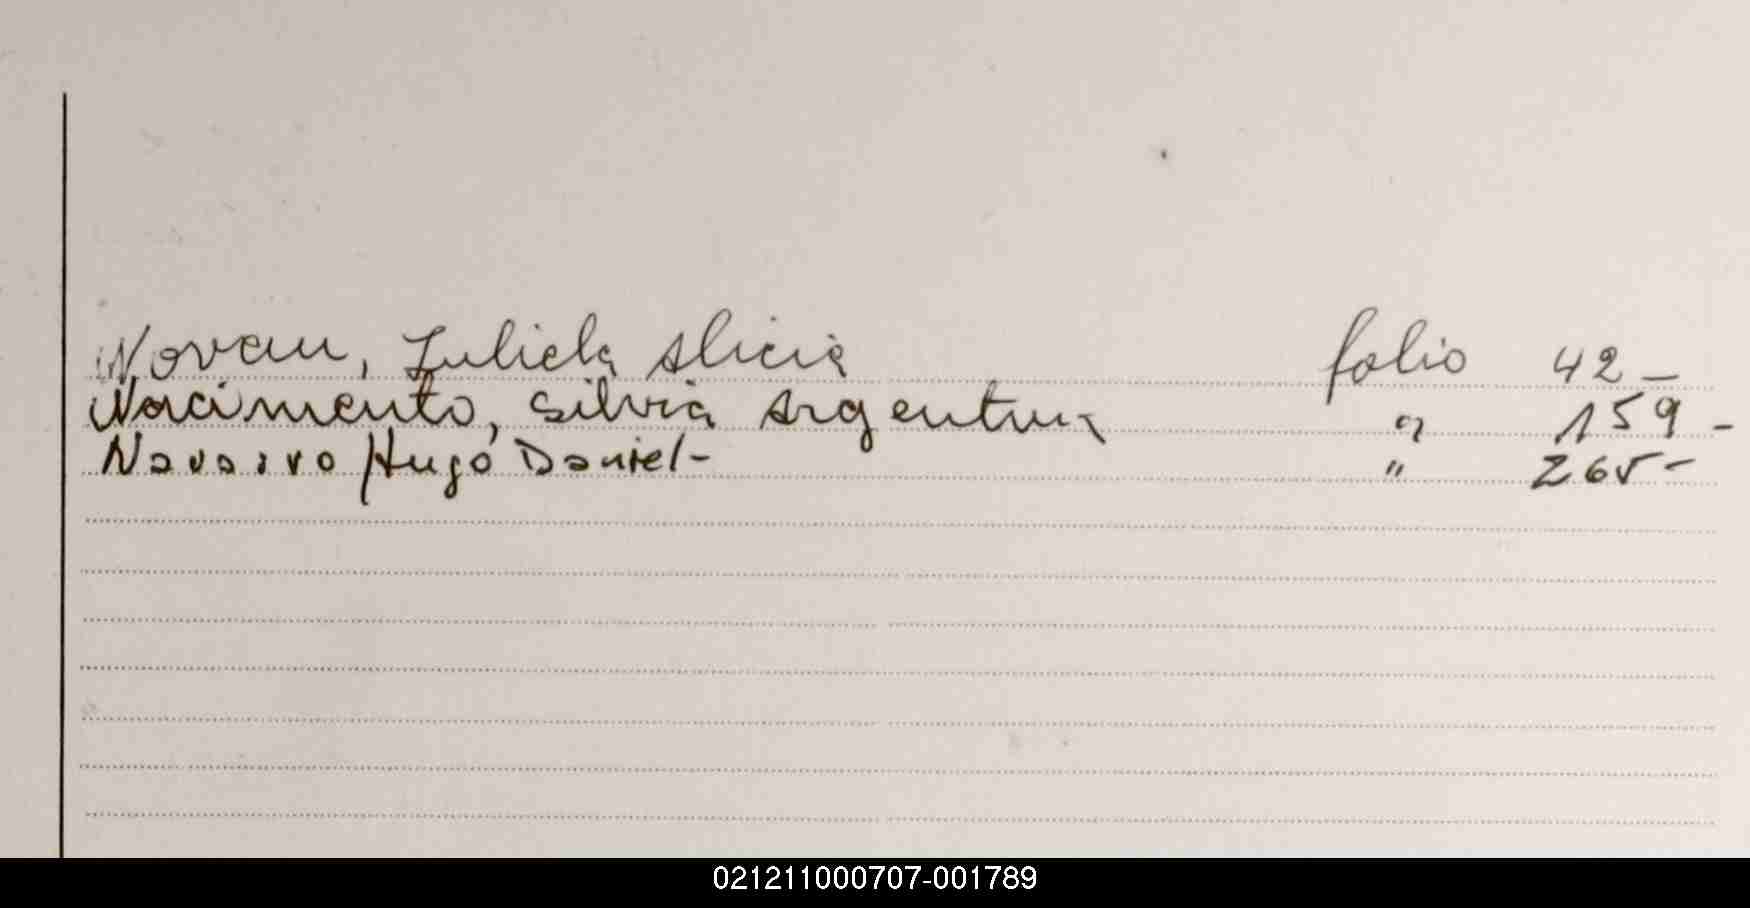 Novau, Julieta Alicia folio 42 —
Nacimento, Silvia Argentina " 159 -
Navarro Hugo Daniel - " 265 -
021211000707-001789